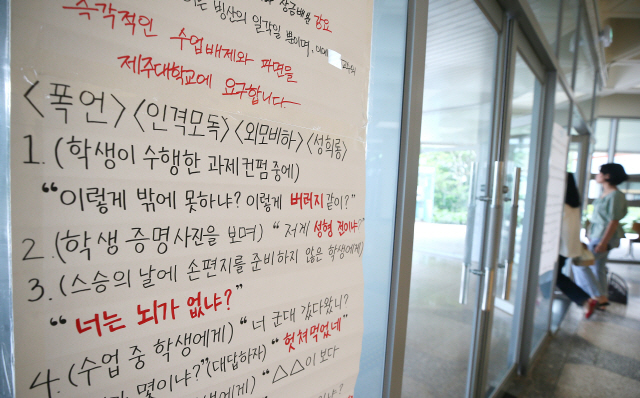 상금배분 강요
는 빙산의 일각일 뿐이며, 이에
즉각적인 수업배제와 파면을
제주대학교에 요구합니다.
<폭언><인격모독><외모비하><성희롱>
1. (학생이 수행한 과제 컨펌 중에)
"이렇게 밖에 못하냐? 이렇게 버러지같이?"
2. (학생 증명사진을 보며) "저게 성형 전이냐?"
3. (스승의 날에 손편지를 준비하지 않은 학생에게)
"너는 뇌가 없냐?"
4. (수업 중 학생에게) "너 군대 갔다왔니?
몇이냐?" (대답하자) "헛쳐먹었네"
생에게) "△△이 보다